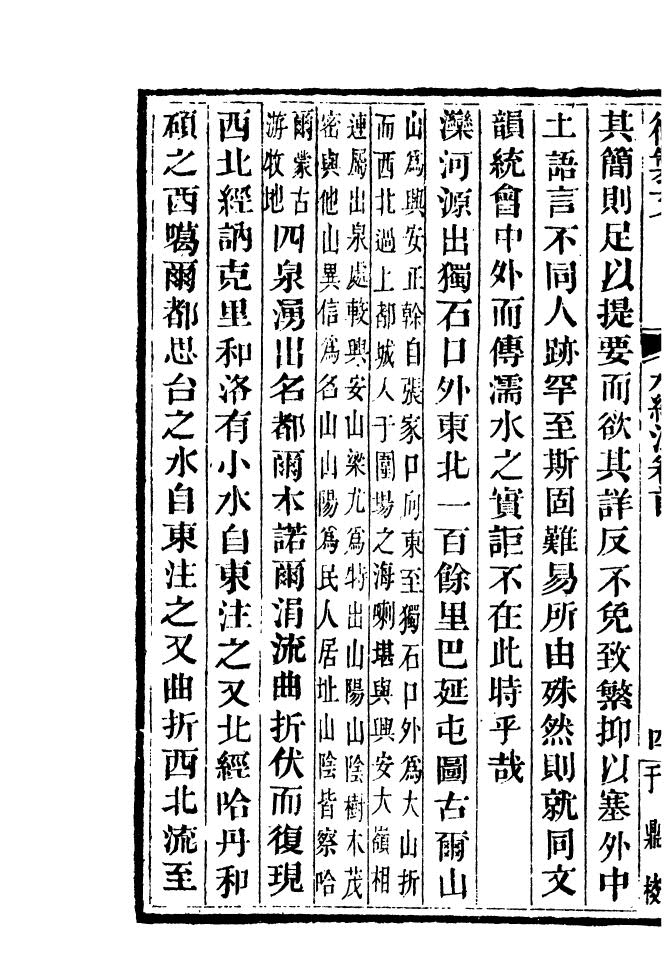 水經注卷首
四
于
鼎
校
其簡則足以提要而欲其詳反不免致繁抑以塞外中
土語言不同人跡罕至斯固難易所由殊然則就同文
韻統會中外而傳濡水之實詎不在此時乎哉
灤河源出獨石口外東北一百餘里巴延屯圖古爾山
山爲興安正幹自張家口向東至獨石口外爲大山折
而西北過上都城入于圍場之海喇堪與興安大嶺相
連屬出泉處較興安山梁尤爲特出山陽山陰樹木茂
密與他山異信爲名山山陽爲民人居址山陰皆察哈
爾蒙古
游牧地
四泉湧出名都爾木諾爾涓流曲折伏而復現
西北經訥克里和洛有小水自東注之又北經哈丹和
碩之西噶爾都思台之水自東注之又曲折西北流至